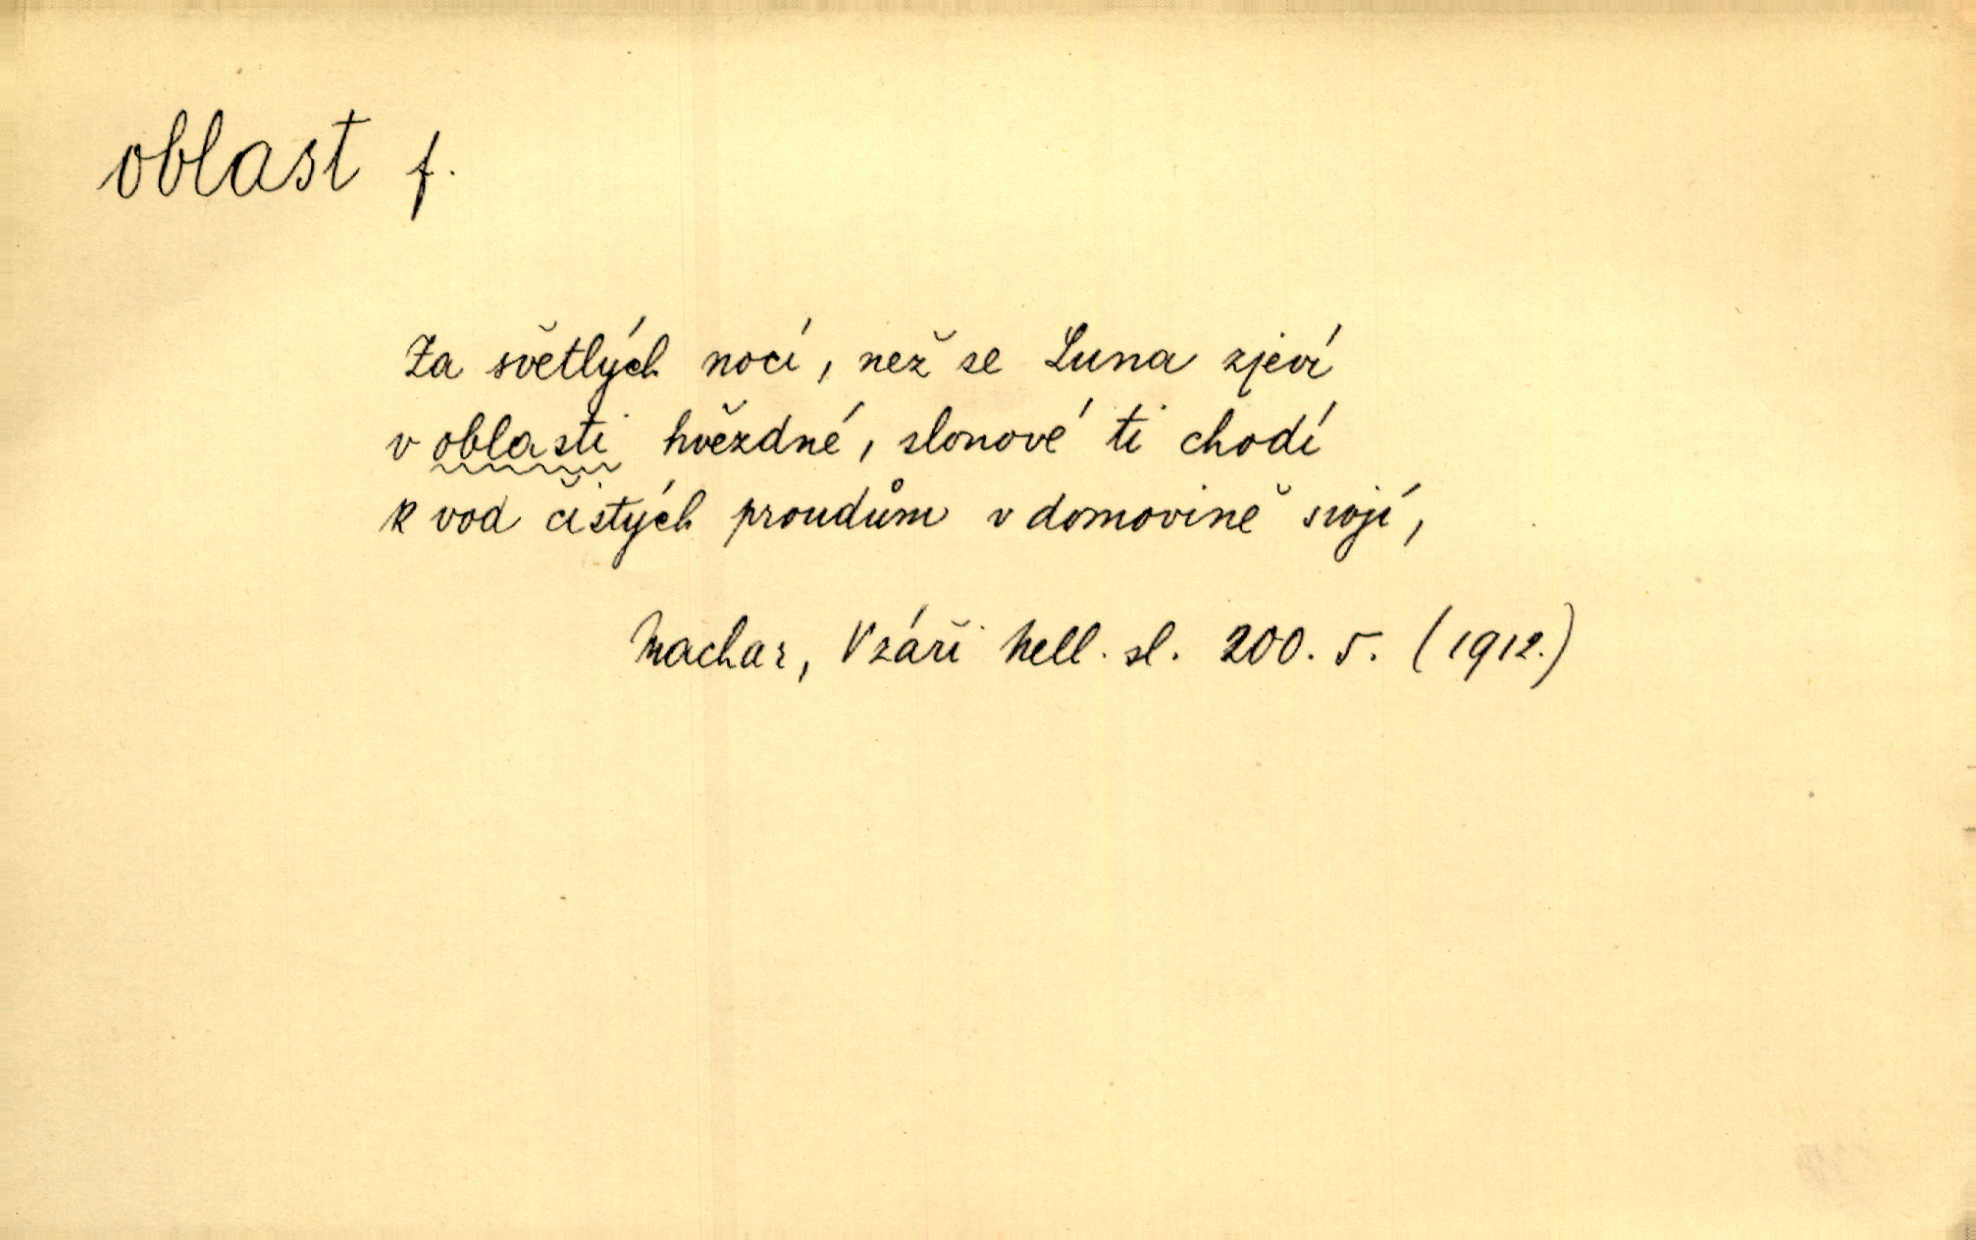 oblast f.
Za světlých nocí, než se Luna zjeví
v oblasti hvězdné, slonové ti chodí
k vod čistých proudům v domovině svojí,
Machar, V záři hell. sl. 200. 5. (1912.)